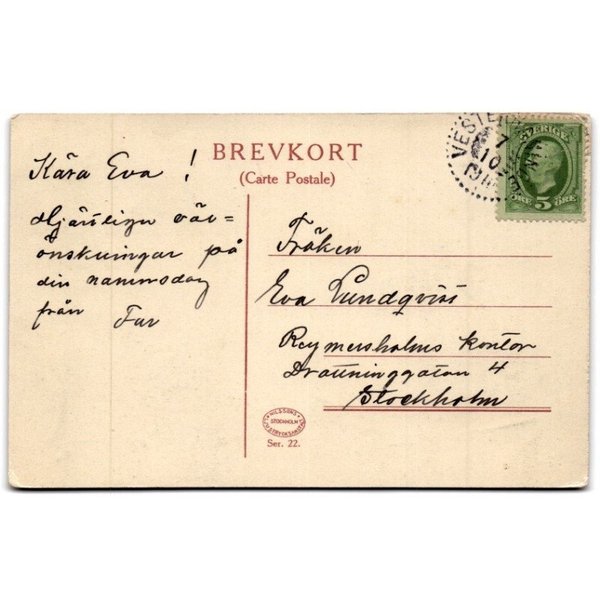 BREVKORT
(Carte Postale)
Kära Eva!
Hjärtliga väl=
önskningar på
din namnsdag
från Far
Fröken
Eva Lundqvist
Reymersholms kontor
Drottninggatan 4
Stockholm
SVERIGE
5
ÖRE
STOCKHOLM
Ser. 22.